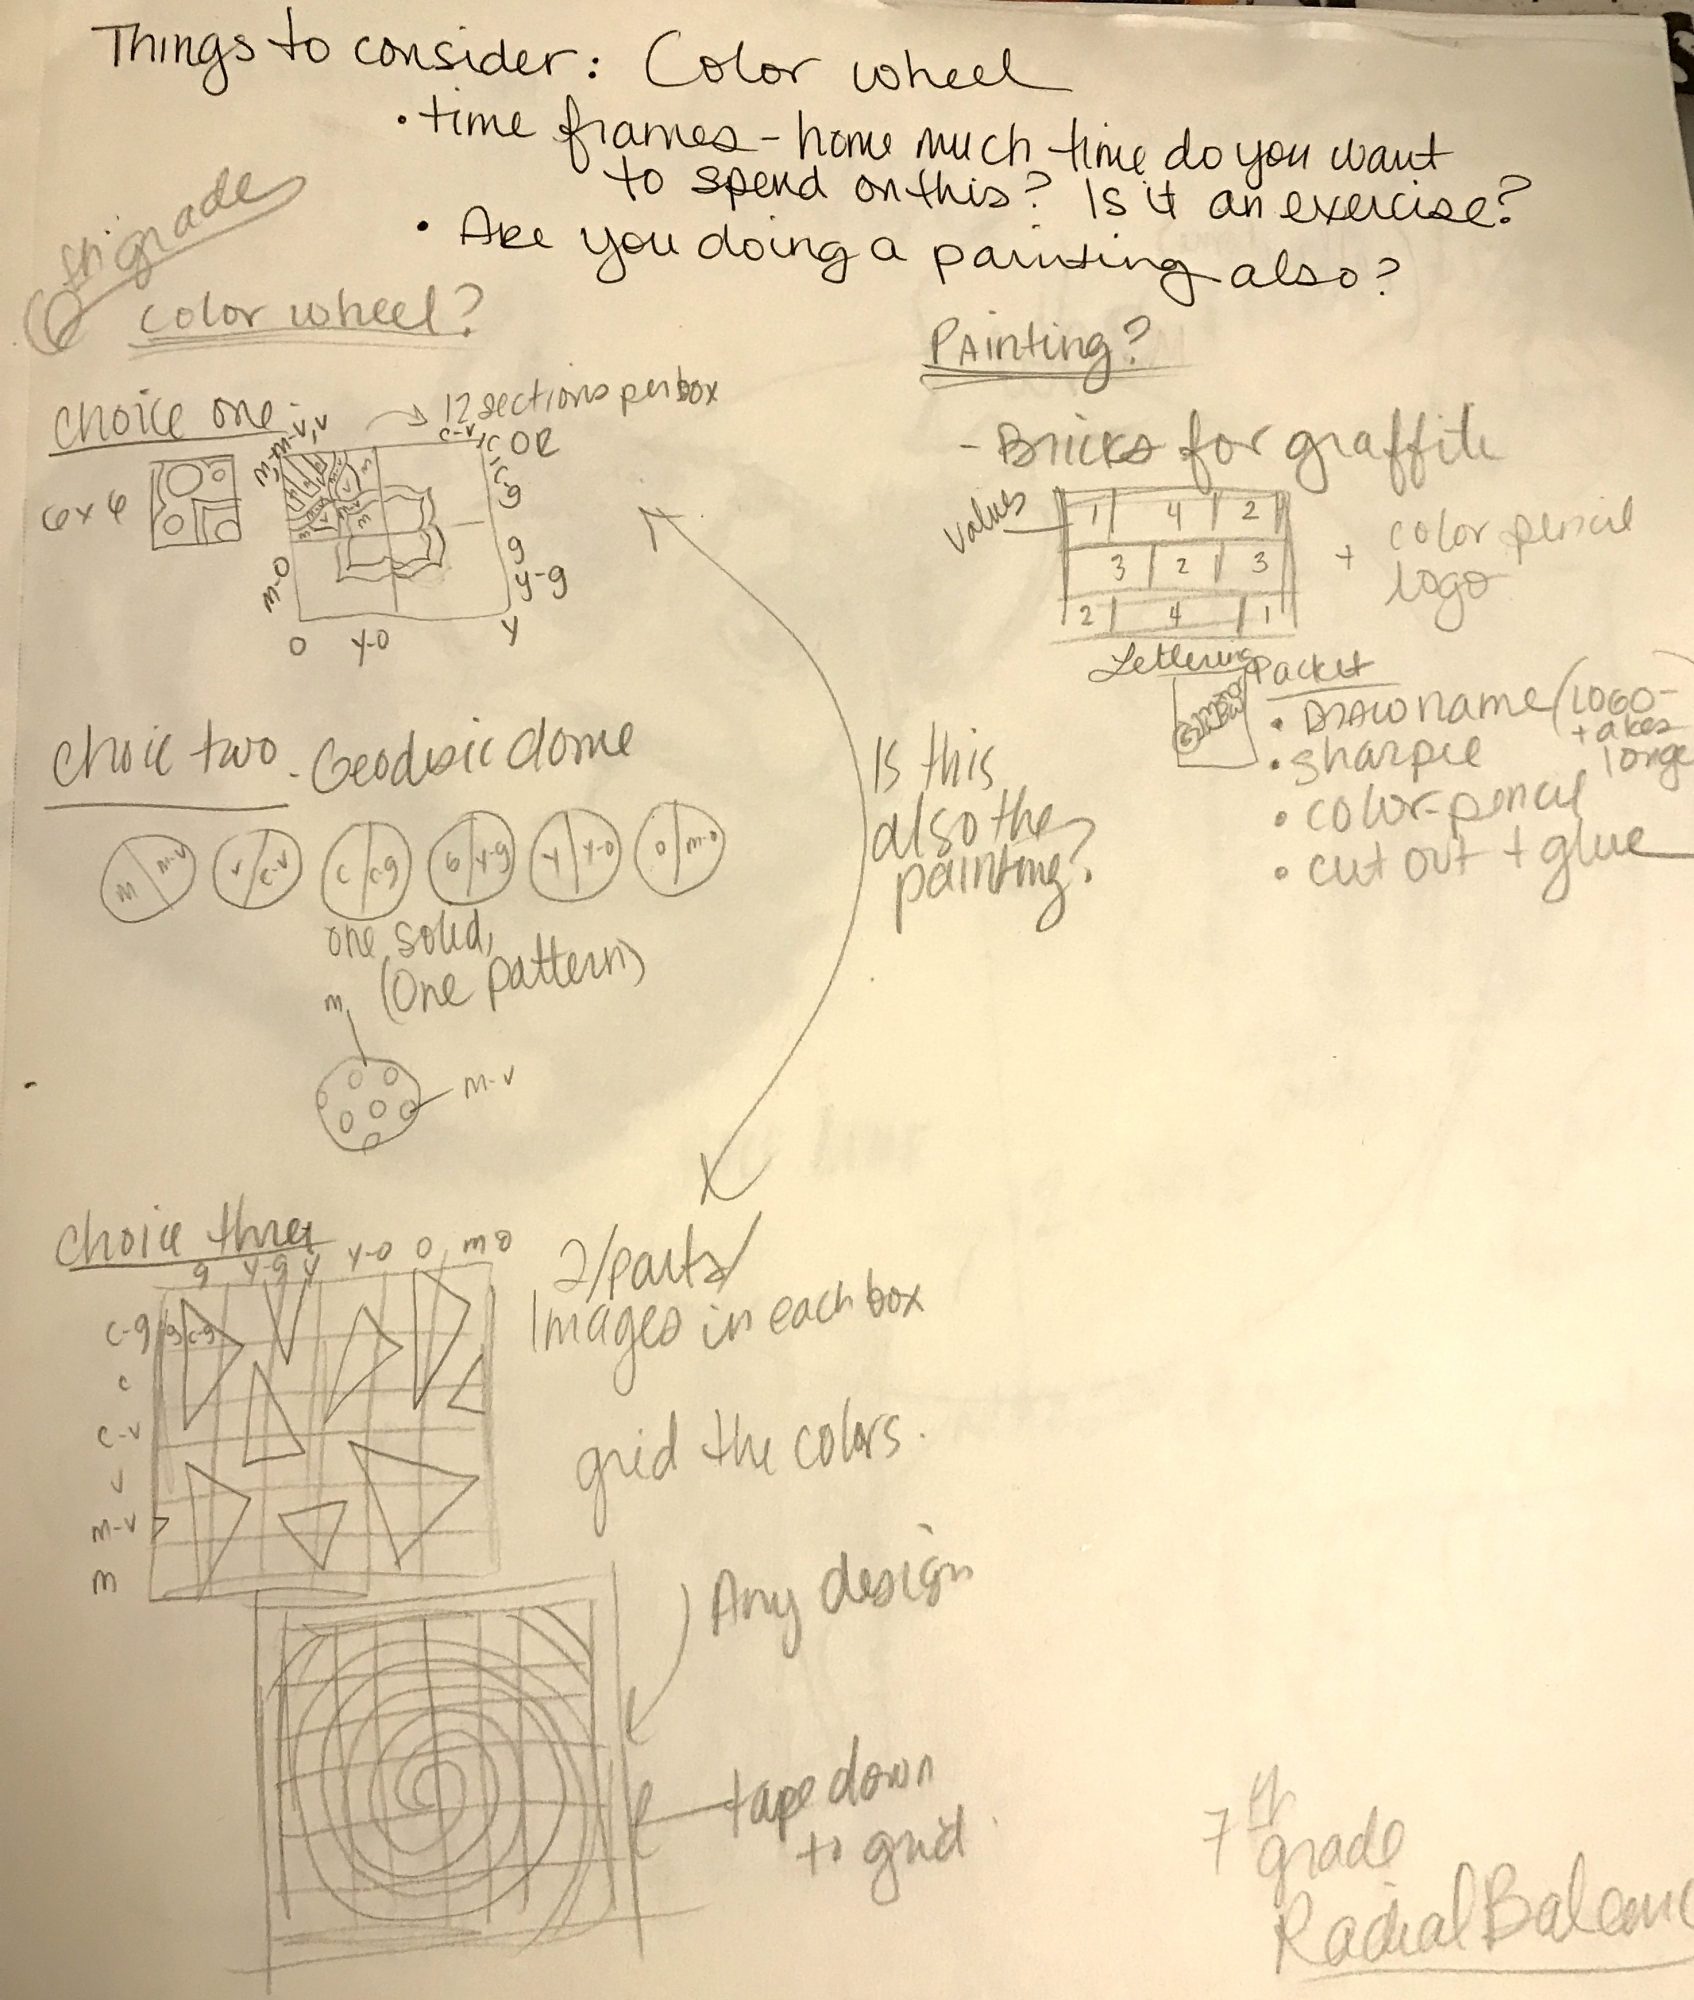 Things to consider: Color wheel
• time frames - home much time do you want
to spend on this? Is it an exercise?
• Are you doing a painting also?
6th grade
color wheel?
Painting?
choice one -
12 sections per box
6x6
m-v, v
c-v, c
OR
c-g
g
y-g
y
y-o
o
m-o
- Bricks for graffiti
values
1 4 2
3 2 3
2 4 1
+ color pencil
logo
Lettering Packet
• Draw name (logo-
takes
longe
• sharpie
• color-pencil
• cut out + glue
Is this
also the
painting?
choic two - Geodesic dome
m m-v
v c-v
c c-g
G y-g
y y-o
o m-o
one solid,
(One pattern)
m
m-v
choice three
g y-g y y-o o m o
c-g g c-g
c
c-v
v
m-v
m
2/parts/
Images in each box
grid the colors.
Any design
tape down
to grid
7th
grade
Radial Balanc